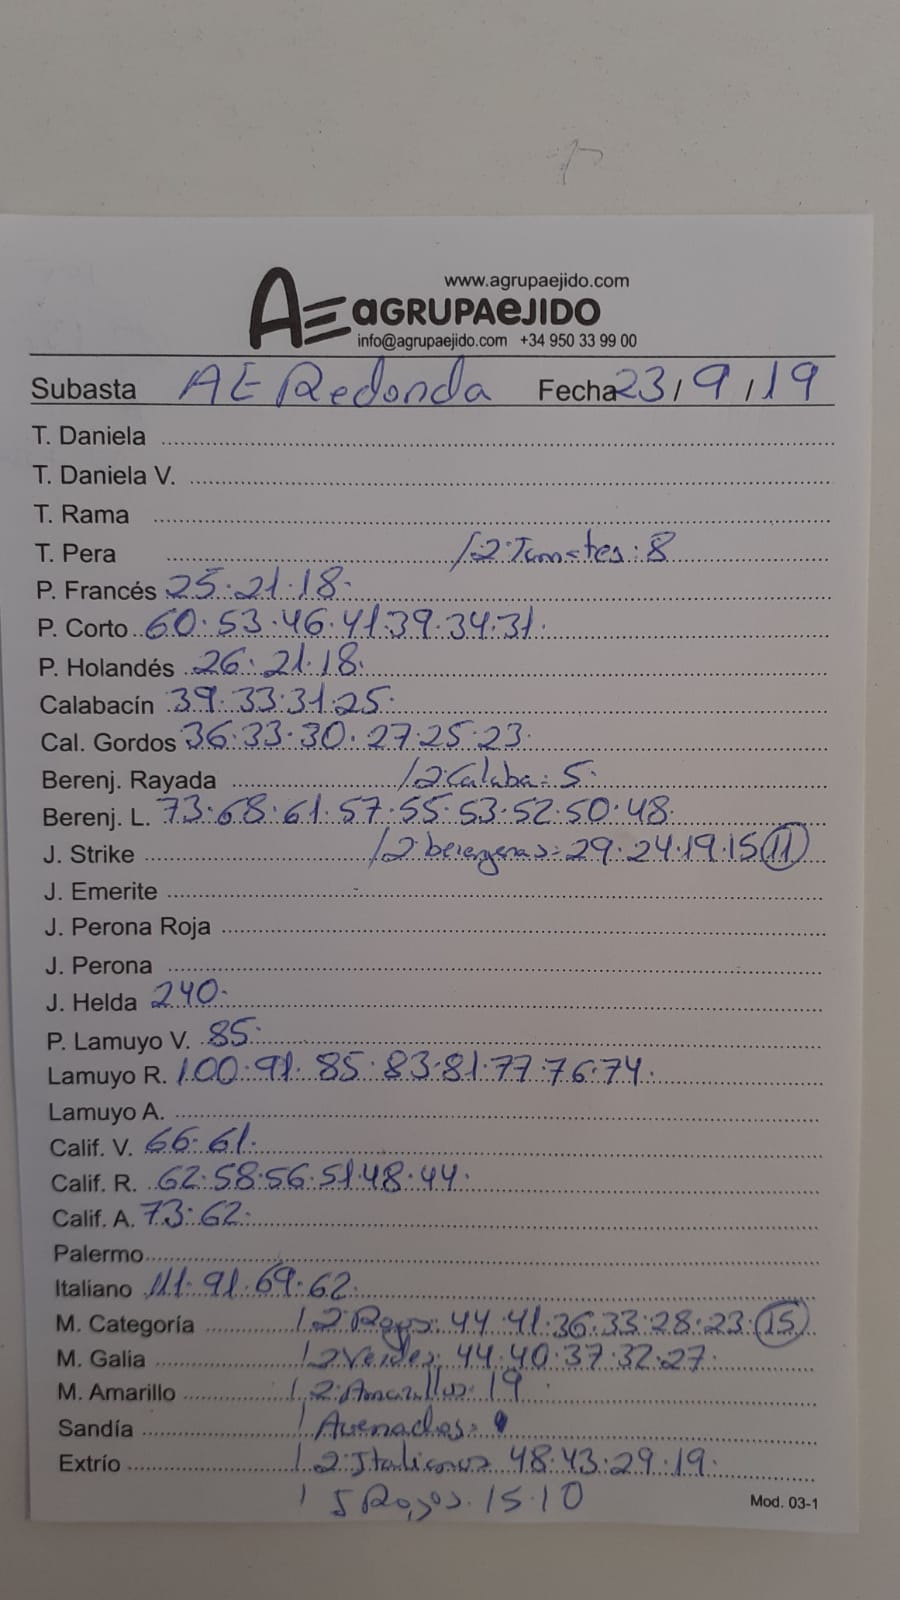 www.agrupaejido.com
AE aGRUPAeJIDO
info@agrupaejido.com +34 950 33 99 00
Subasta AE Redonda Fecha 23/9/19
T. Daniela
T. Daniela V.
T. Rama
T. Pera /2:Tomates:8
P. Francés 25.21.18.
P. Corto 60.53.46.41.39.34.31.
P. Holandés 26.21.18.
Calabacín 39.33.31.25.
Cal. Gordos 36.33.30.27.25.23.
Berenj. Rayada /2:Calaba:5.
Berenj. L. 73.68.61.57.55.53.52.50.48.
J. Strike /2 berengenas:29.24.19.15 11
J. Emerite
J. Perona Roja
J. Perona
J. Helda 240.
P. Lamuyo V. 85.
Lamuyo R. 100.91.85.83.81.77.76.74.
Lamuyo A.
Calif. V. 66.61.
Calif. R. 62.58.56.51.48.44.
Calif. A. 73.62.
Palermo
Italiano 111.91.69.62.
M. Categoría /2:Rojos:44.41.36.33.28.23.15
M. Galia /2 Verdes:44.40.37.32.27.
M. Amarillo /2:Amarillos:19
Sandía
Extrío /2:Italianos 48.43.29.19.
/ 5 Rojos.15.10
Mod. 03-1